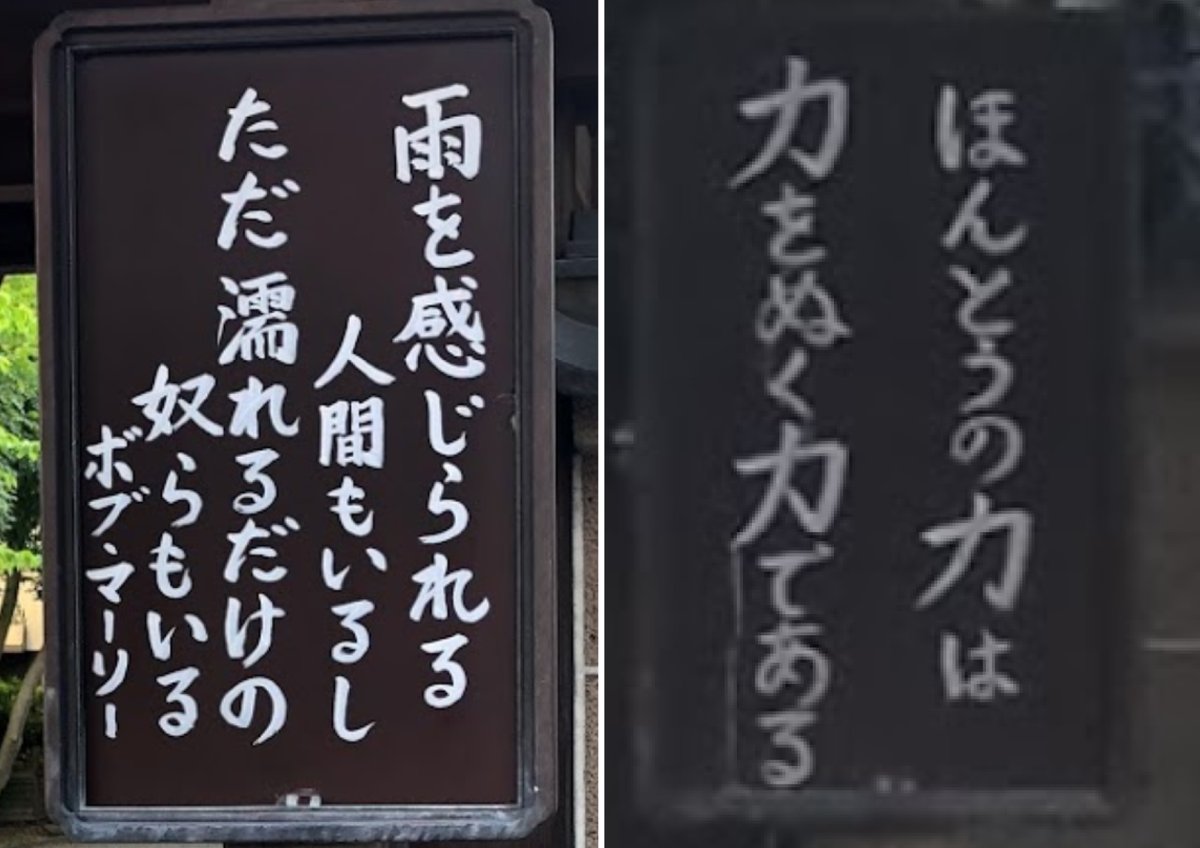 雨を感じられる
人間もいるし
ただ濡れるだけの
奴らもいる
ボブ・マーリー
ほんとうの力は
力をぬく力である